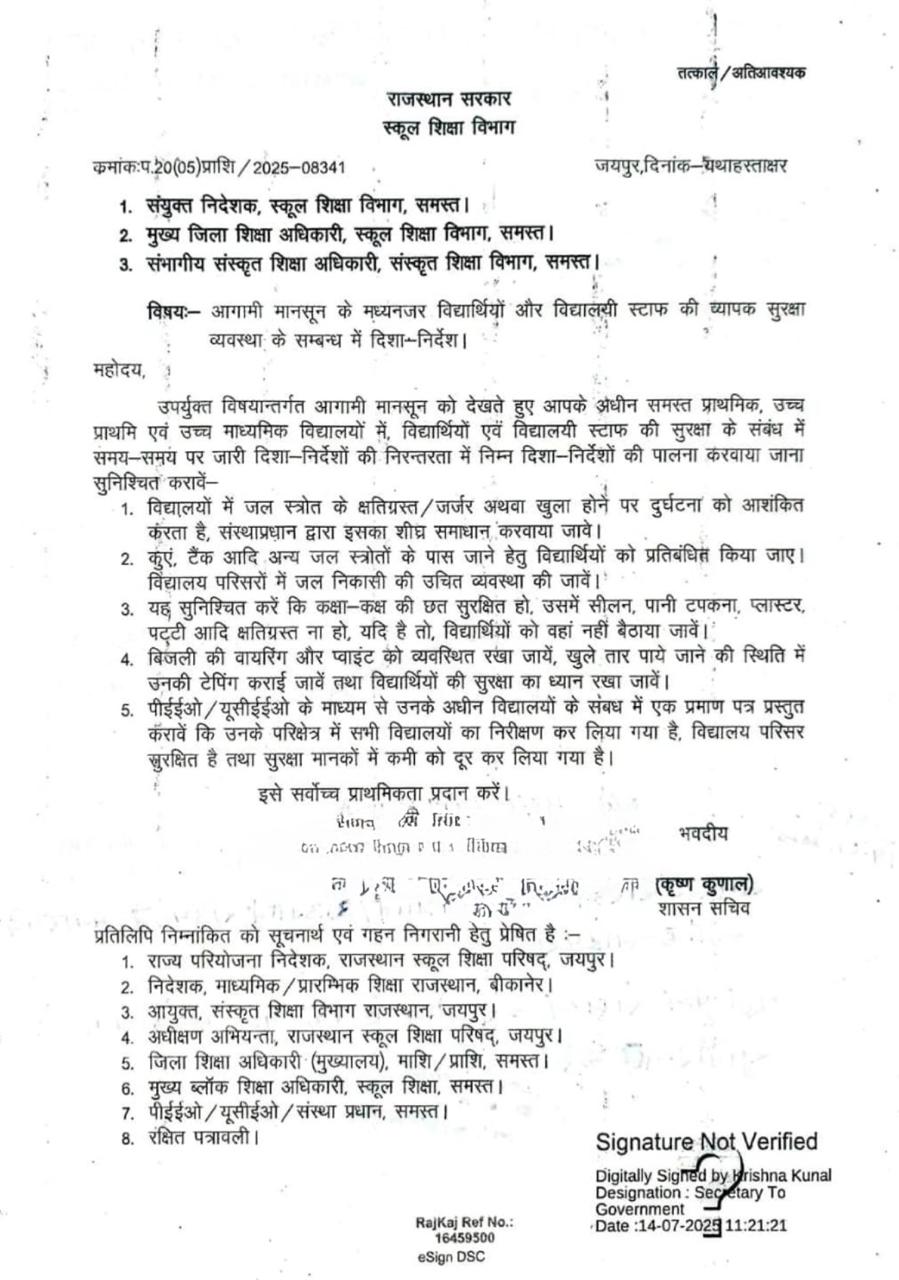 तत्काल/अतिआवश्यक
राजस्थान सरकार
स्कूल शिक्षा विभाग
क्रमांक:प.20(05)प्राशि/2025-08341 जयपुर,दिनांक–यथाहस्ताक्षर
1. संयुक्त निदेशक, स्कूल शिक्षा विभाग, समस्त।
2. मुख्य जिला शिक्षा अधिकारी, स्कूल शिक्षा विभाग, समस्त।
3. संभागीय संस्कृत शिक्षा अधिकारी, संस्कृत शिक्षा विभाग, समस्त।
विषयः– आगामी मानसून के मध्यनजर विद्यार्थियों और विद्यालयी स्टाफ की व्यापक सुरक्षा
व्यवस्था के सम्बन्ध में दिशा–निर्देश।
महोदय,
उपर्युक्त विषयान्तर्गत आगामी मानसून को देखते हुए आपके अधीन समस्त प्राथमिक, उच्च
प्राथमि एवं उच्च माध्यमिक विद्यालयों में, विद्यार्थियों एवं विद्यालयी स्टाफ की सुरक्षा के संबंध में
समय–समय पर जारी दिशा–निर्देशों की निरन्तरता में निम्न दिशा–निर्देशों की पालना करवाया जाना
सुनिश्चित करावें–
1. विद्यालयों में जल स्त्रोत के क्षतिग्रस्त/जर्जर अथवा खुला होने पर दुर्घटना को आशंकित
करता है, संस्थाप्रधान द्वारा इसका शीघ्र समाधान करवाया जावे।
2. कुंए, टैंक आदि अन्य जल स्त्रोतों के पास जाने हेतु विद्यार्थियों को प्रतिबंधित किया जाए।
विद्यालय परिसरों में जल निकासी की उचित व्यवस्था की जावें।
3. यह सुनिश्चित करें कि कक्षा–कक्ष की छत सुरक्षित हो, उसमें सीलन, पानी टपकना, प्लास्टर,
पट्टी आदि क्षतिग्रस्त ना हो, यदि है तो, विद्यार्थियों को वहां नहीं बैठाया जावें।
4. बिजली की वायरिंग और प्वाइंट को व्यवस्थित रखा जायें, खुले तार पाये जाने की स्थिति में
उनकी टेपिंग कराई जावें तथा विद्यार्थियों की सुरक्षा का ध्यान रखा जावें।
5. पीईईओ/यूसीईईओ के माध्यम से उनके अधीन विद्यालयों के संबध में एक प्रमाण पत्र प्रस्तुत
करावें कि उनके परिक्षेत्र में सभी विद्यालयों का निरीक्षण कर लिया गया है, विद्यालय परिसर
सुरक्षित है तथा सुरक्षा मानकों में कमी को दूर कर लिया गया है।
इसे सर्वोच्च प्राथमिकता प्रदान करें।
भवदीय
(कृष्ण कुणाल)
शासन सचिव
प्रतिलिपि निम्नांकित को सूचनार्थ एवं गहन निगरानी हेतु प्रेषित है :–
1. राज्य परियोजना निदेशक, राजस्थान स्कूल शिक्षा परिषद्, जयपुर।
2. निदेशक, माध्यमिक/प्रारम्भिक शिक्षा राजस्थान, बीकानेर।
3. आयुक्त, संस्कृत शिक्षा विभाग राजस्थान, जयपुर।
4. अधीक्षण अभियन्ता, राजस्थान स्कूल शिक्षा परिषद्, जयपुर।
5. जिला शिक्षा अधिकारी (मुख्यालय), माशि/प्राशि, समस्त।
6. मुख्य ब्लॉक शिक्षा अधिकारी, स्कूल शिक्षा, समस्त।
7. पीईईओ/यूसीईओ/संस्था प्रधान, समस्त।
8. रक्षित पत्रावली।
Signature Not Verified
Digitally Signed by Krishna Kunal
Designation : Secretary To
Government
Date :14-07-2025 11:21:21
RajKaj Ref No.:
16459500
eSign DSC